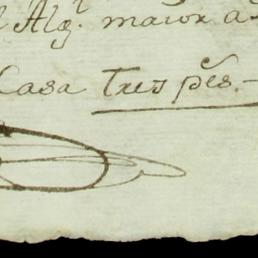 Alg.l maior a
Casa Tres p.es